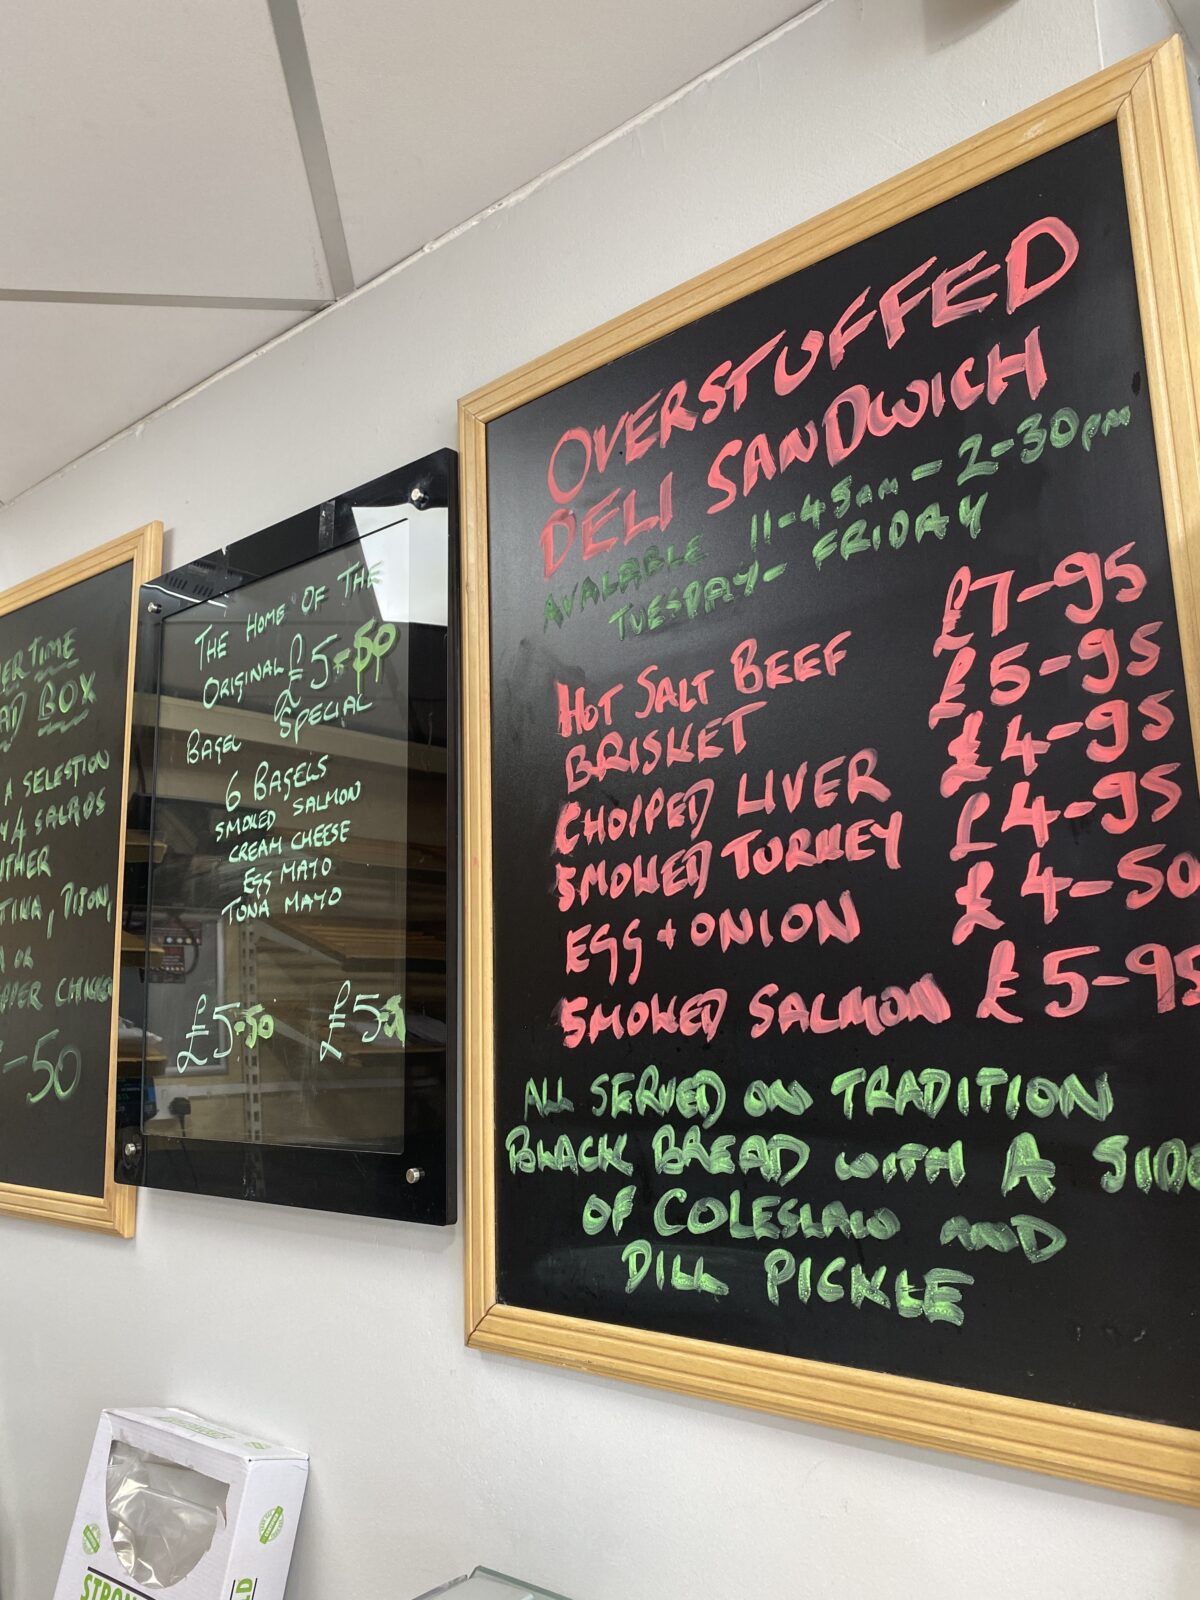 TIME
BOX
A SELECTION
4 SALADS
DIJON,
OR
CHICKEN
-50
THE HOME OF THE
ORIGINAL £5-50
BAGEL SPECIAL
6 BAGELS
SMOKED SALMON
CREAM CHEESE
EGG MAYO
TUNA MAYO
£5-50 £5-
OVERSTUFFED
DELI SANDWICH
AVALABLE 11-45am - 2-30pm
TUESDAY - FRIDAY
HOT SALT BEEF £7-95
BRISKET £5-95
CHOPPED LIVER £4-95
SMOKED TURKEY £4-95
EGG + ONION £4-50
SMOKED SALMON £5-95
ALL SERVED ON TRADITION
BLACK BREAD WITH A SIDE
OF COLESLAW AND
DILL PICKLE
STRON